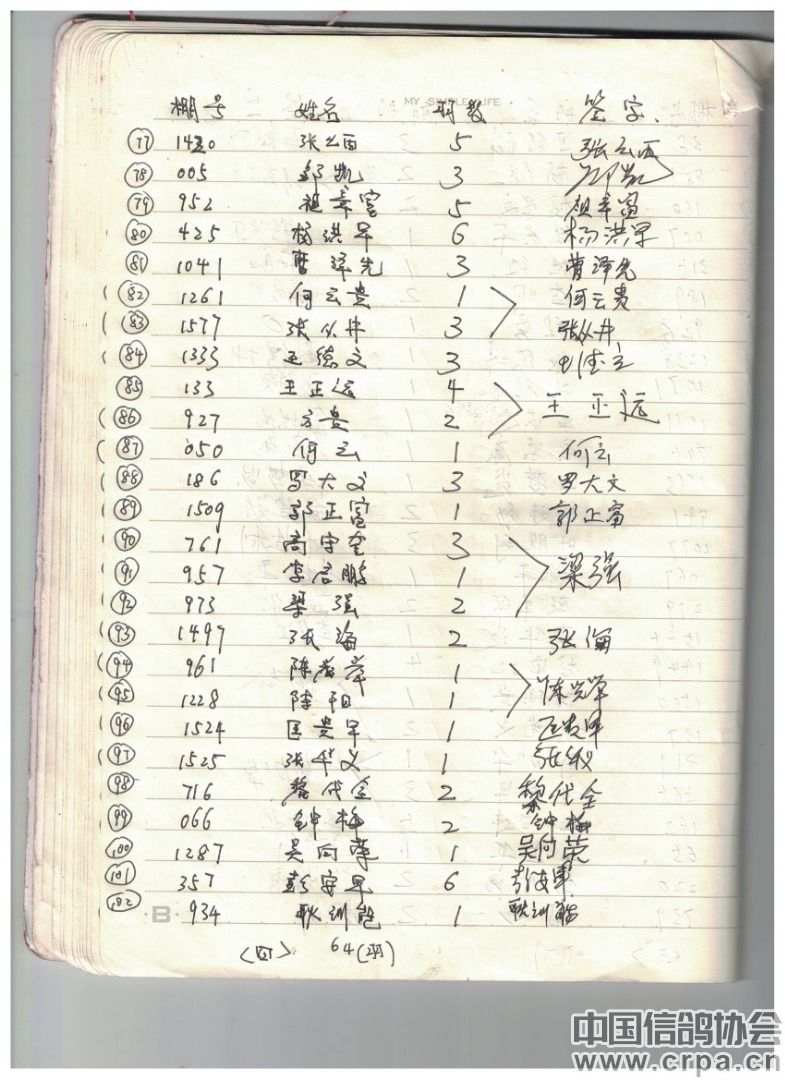 棚号 姓名 羽数 签字.
MY SIMPLE LIFE
77 1420 张云西 5 张云西
78 005 邹凯 3 邹凯
79 952 祖章富 5 祖章富
80 425 杨洪军 6 杨洪军
81 1041 曹泽先 3 曹泽先
82 1261 何云贵 1 何云贵
83 1577 张从井 3 张从井
84 1333 王德文 3
85 133 王正远 4 王正远
86 927 方贵 2
87 050 何云 1 何云
88 186 罗大文 3 罗大文
89 1509 郭正富 1 郭正富
90 761 高守奎 3
91 957 李启鹏 1 梁强
92 973 梁强 2
93 1497 张海 2 张海
94 961 1
95 1228 陈阳 1
96 1524 匡贵军 1 匡贵军
97 1525 张华义 1
98 716 黎代全 2 黎代全
99 066 钟梅 2 钟梅
100 1287 吴向荣 1 吴向荣
101 357 彭安军 6
102 934 耿训 1 耿训
B
<四> 64(羽)
中国信鸽协会
www.crpa.cn